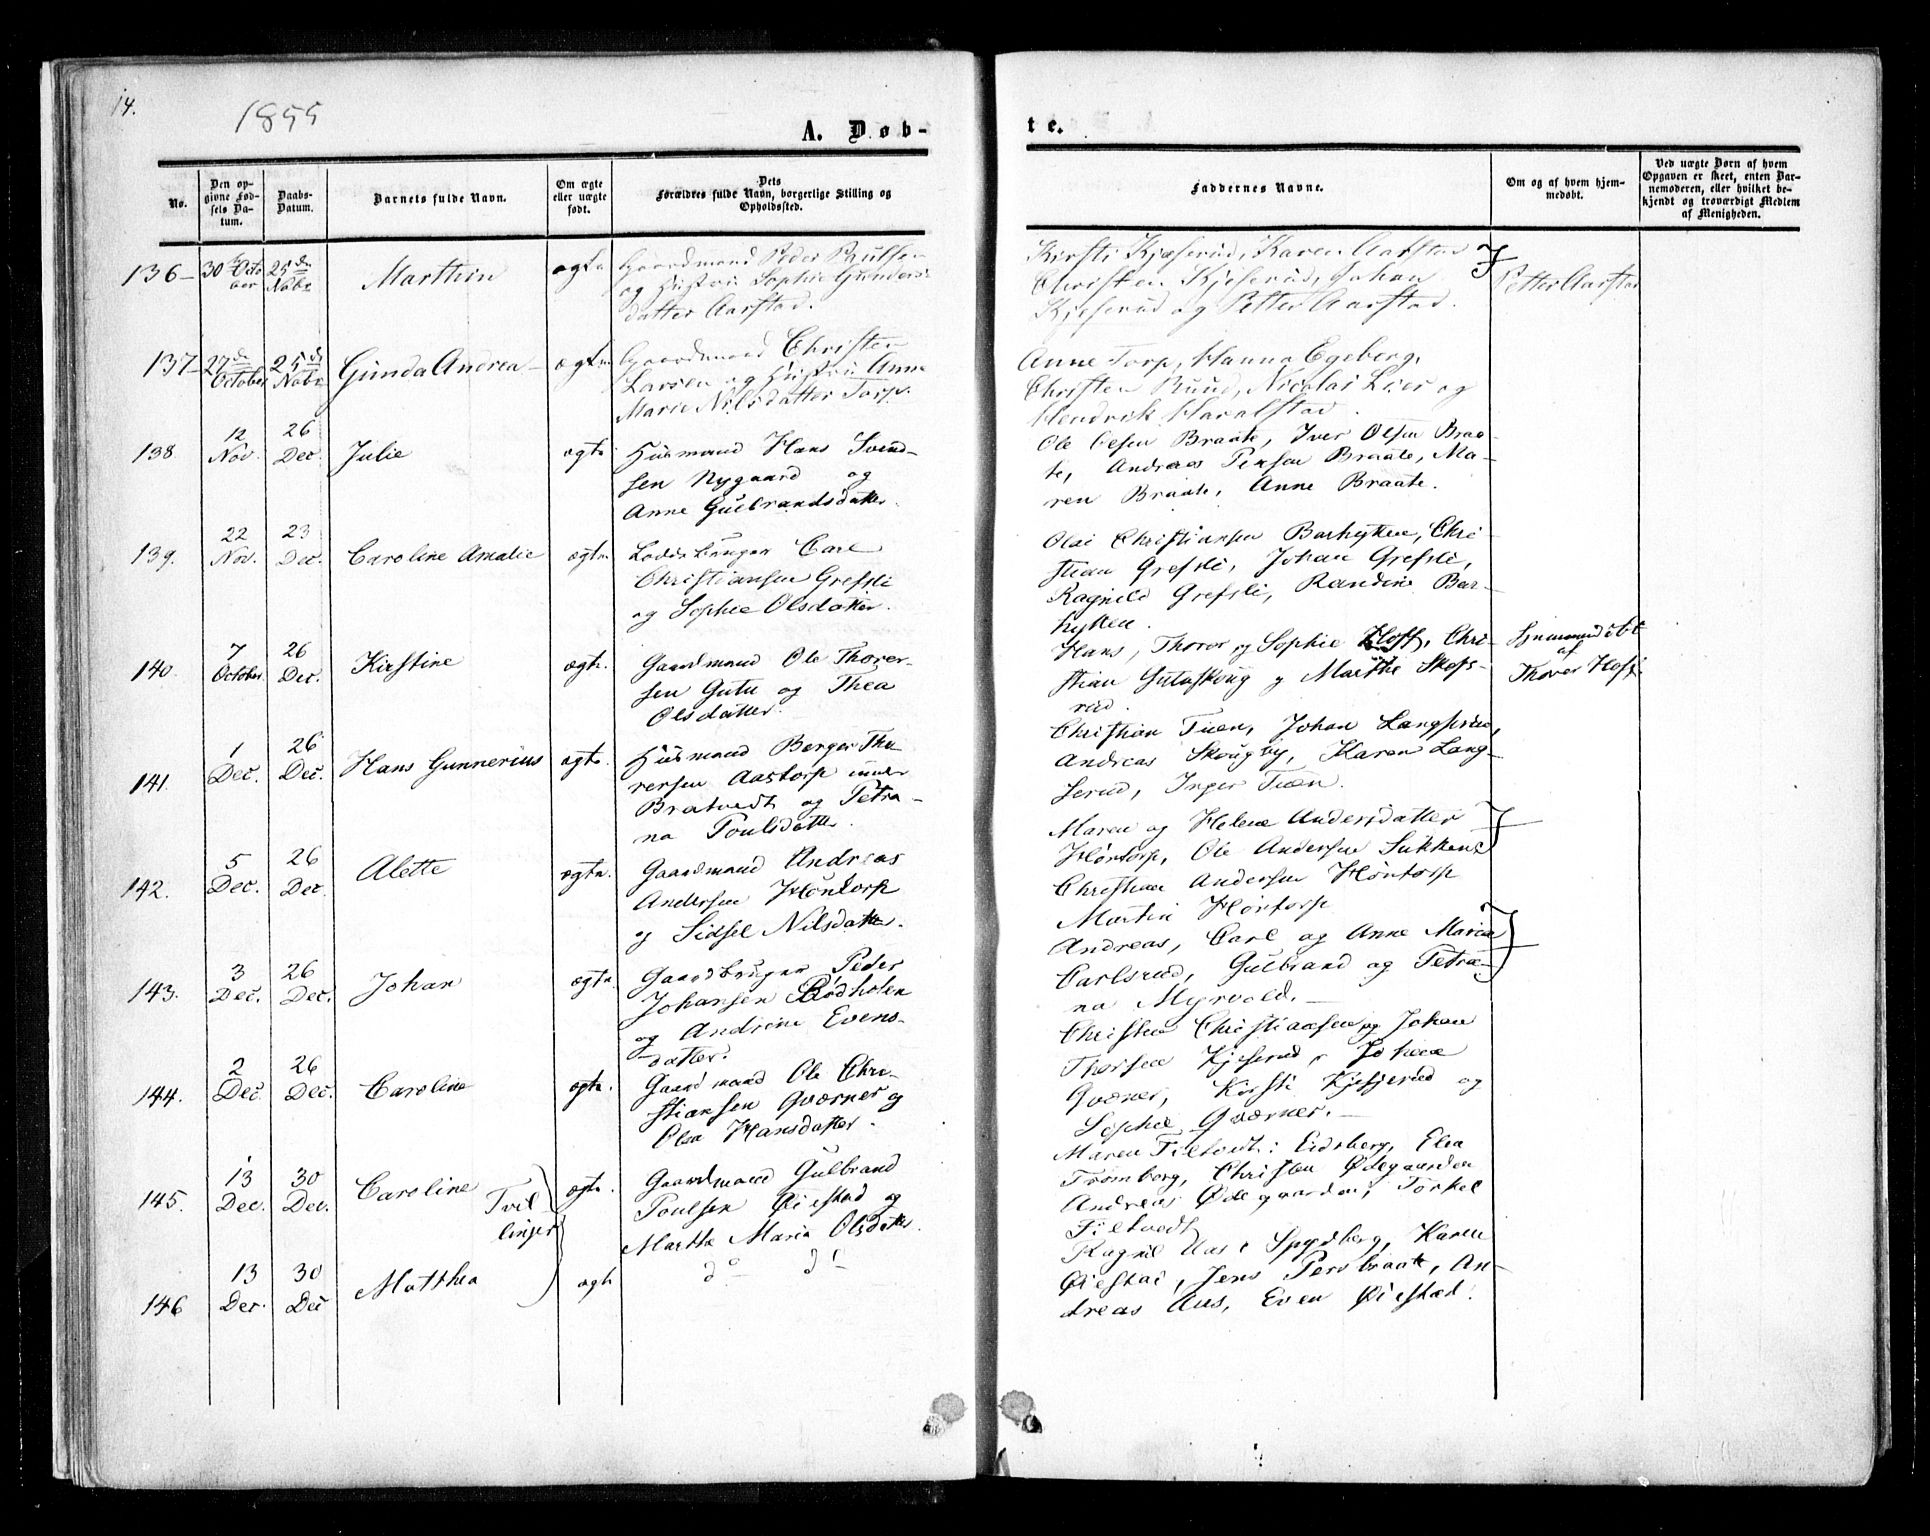 14.
1855
A. Døb-
te.
No.
Den op-
givne Fød-
sels Da-
tum.
Daabs-
Datum.
Barnets fulde Navn.
Om ægte
eller uægte
født.
Dets
Forældres fulde Navn, borgerlige Stilling og
Opholdssted.
Faddernes Navne.
Om og af hvem hjem-
medøbt.
Ved uægte Børn af hvem
Opgaven er skeet, enten Bar-
nemoderen, eller hvilket be-
kjendt og troværdigt Medlem
af Menigheden.
136 30 Octo
ber
25de
Novbr
Marthin
ægte
Gaardmand Peder
og Hustru Sophie Gunders
datter Aarstad.
Kirsti Kjæserud, Karen Aarstad
Christen Kjeserud, Johan
Kjeserud og Petter Aarstad.
Petter Aarstad
137 27de
October
25de
Novbr
Gunda Andrea
ægte
Gaardmand Christen
Larsen og Hustru Anne
Marie Nilsdatter Torp.
Anne Torp, Hanna Egeberg,
Christen Ruud, Nicolai Lier og
Hendrik Haralstad.
138
12
Nov.
26
Dec.
Julie
ægte
Huusmand Hans Svend-
sen Nygaard og
Anne Gulbrandsdatter.
Ole Olsen Braate, Iver Olsen Braa-
te, Andreas Braate, Ma-
ren Braate, Anne Braate.
139.
22
Nov.
23
Dec.
Caroline Amalie
ægte
Carl
Christiansen Grefsli
og Sophie Olsdatter.
Olai Christiansen Barhytten, Chri-
stian Grefsli, Johan Grefsli,
Ragnild Grefsli, Randine Bar-
hytten.
140.
7
October
26
Dec.
Kirstine
ægte.
Gaardmand Ole Thorer-
sen Gutu og Thea
Olsdatter.
Hans, Thorer og Sophie Hoff, Chri-
stian Gutuskoug og Marthe Skofs-
rud.
Hjemmedøbt
af
Thorer Hoff.
141.
1
Dec.
26
Dec.
Hans Gunnerius
ægte.
Huusmand Borger Tho-
rersen Aastorp under
Bratvedt og Petra-
na Poulsdatter.
Christian Tuen, Johan Langsrud,
Andreas Skougby, Karen Lang-
serud, Inger Tuen.
142.
5
Dec.
26
Dec
Alette
ægte.
Gaardmand Andreas
Andersen Hörtorp
og Sidsel Nilsdatter.
Maren og Helene Andersdatter
Hörtorp, Ole Andersen
Christian Andersen Hörtorp
Martin Hörtorp
143.
3
Dec.
26
Dec.
Johan
ægte
Gaardbruger Peder
Johansen Rødholen
og Andrine Evens-
datter.
Andreas, Carl og Anne Maria
Carlsrud, Gulbrand og Petra-
na Myrvold.
144.
2
Dec.
26
Dec.
Caroline
ægte.
Gaardmand Ole Chri-
stiansen Qværner og
Olea Hansdatter.
Christen Christiansen og Johan
Thorsen Kjeserud, Johan
Qværner, Kirsti Kjesjerud og
Sophie Qværner.
145.
13
Dec.
30
Dec.
Caroline
Tvil-
linger
ægte.
Gaardmand Gulbrand
Poulsen Øiestad og
Marthe Maria Olsdatter.
Maren Filtvedt i Eidsberg, Elea
Trømborg, Christen Ødegaarden
Andreas Ødegaarden, Torkel
Filtvedt
146
13
Dec.
30
Dec
Matthea
ægte
do do
Ragnil Aas i Spydberg, Karen
Øiestad, Jens Persbraate, An-
dreas Aas, Even Øiestad.